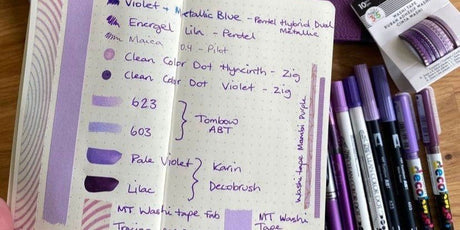 Violet + Metallic Blue - Pentel Hybrid Dual Metallic
Energel Lila - Pentel
Maica 0.4 - Pilot
Clean Color Dot Hyacinth - Zig
Clean Color Dot Violet - Zig
623
603
Tombow
ABT
Pale Violet
Lilac
Karin
Decobrush
MT Washi tape Fab
MT Washi
Tape
Washi tape Mambi Purple